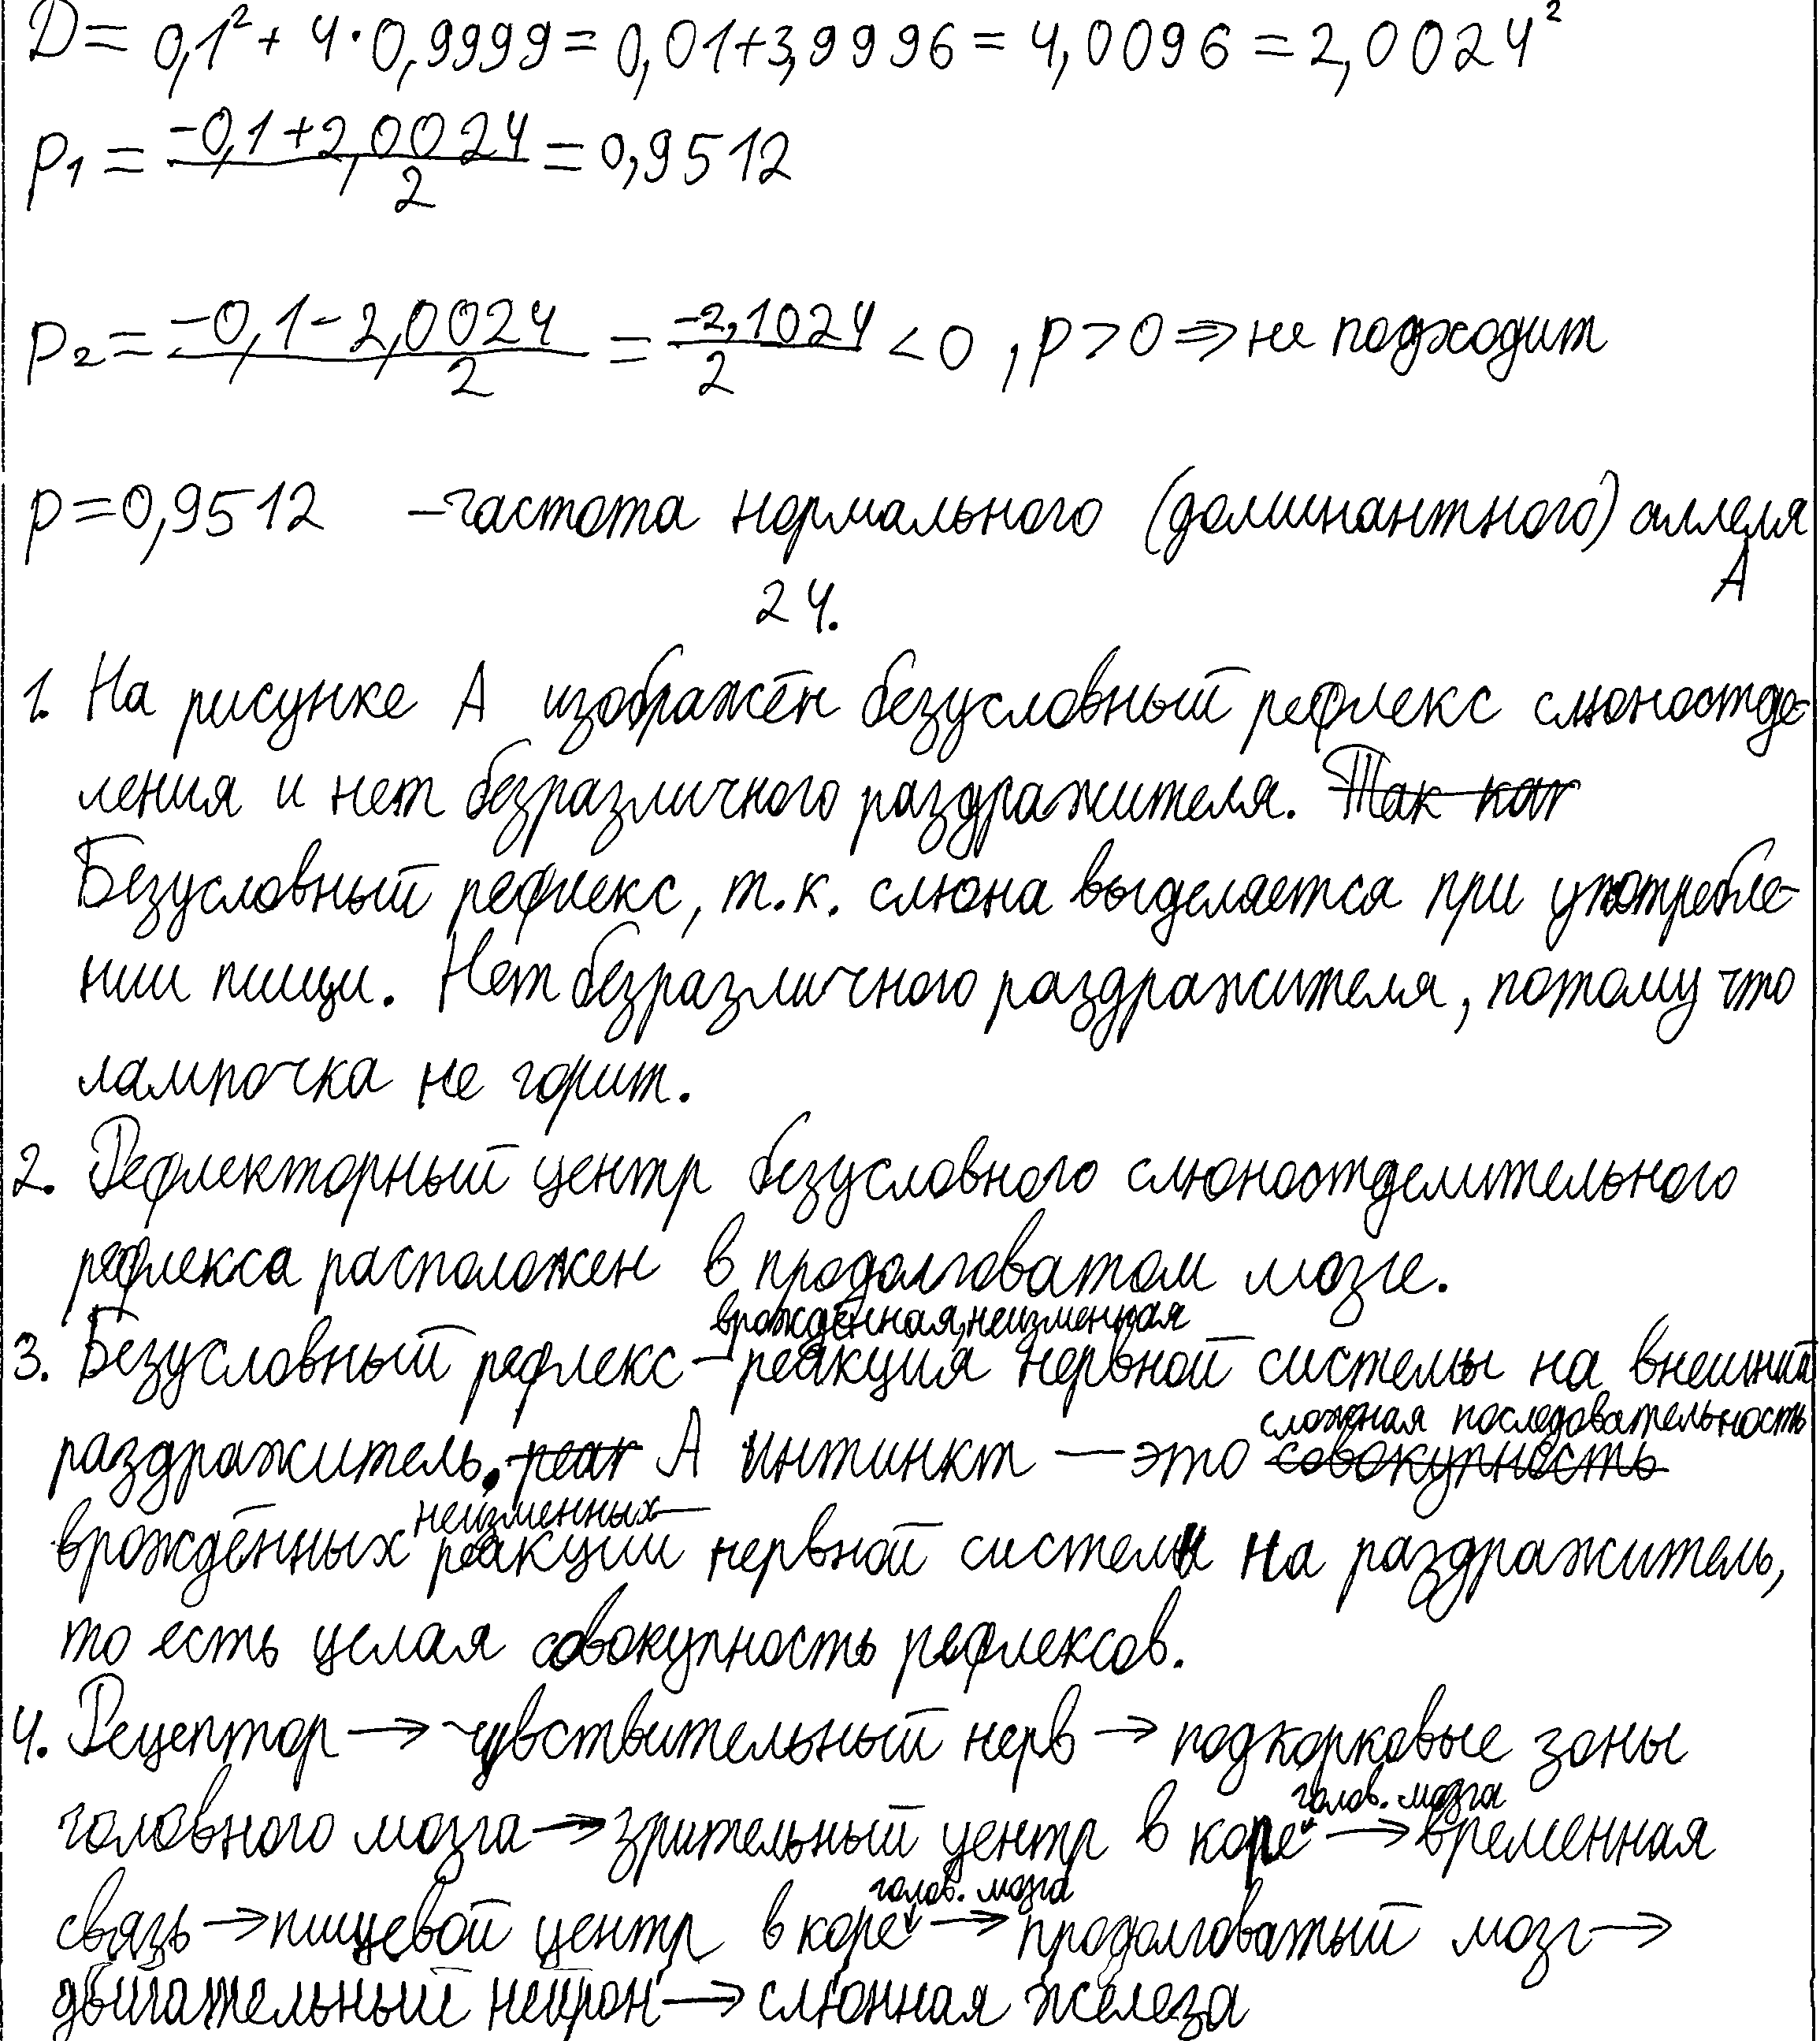 D = 0,1² + 4·0,9999 = 0,01+3,9996 = 4,0096 = 2,0024²
p₁ = (-0,1+2,0024)/2 = 0,9512
p₂ = (-0,1-2,0024)/2 = (-2,1024)/2 < 0, p>0 ⇒ не подходит
p=0,9512 - частота нормального (доминантного) аллеля
А
24.
1. На рисунке А изображён безусловный рефлекс слюноотде-
ления и нет безразличного раздражителя. Так как
Безусловный рефлекс, т.к. слюна выделяется при употребле-
нии пищи. Нет безразличного раздражителя, потому что
лампочка не горит.
2. Рефлекторный центр безусловного слюноотделительного
рефлекса расположен в продолговатом мозге.
врождённая, неизменная
3. Безусловный рефлекс - реакция нервной системы на внешний
сложная последовательность
раздражитель. реак А интинкт — это совокупность
неизменных
врождённых реакции нервной системы на раздражитель,
то есть целая совокупность рефлексов.
4. Рецептор → чувствительный нерв → подкорковые зоны
голов. мозга
головного мозга → зрительный центр в коре → временная
голов. мозга
связь → пищевой центр в коре → продолговатый мозг →
двигательный нейрон → слюнная железа